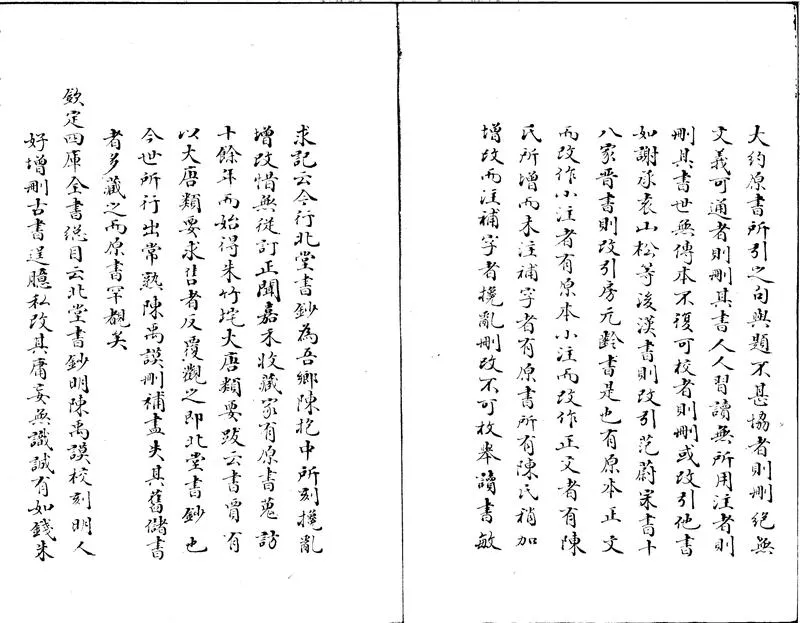 大約原書所引之句與題不甚協者則刪絕無
文義可通者則刪其書人人習讀無所用注者則
刪其書世無傳本不復可校者則刪或改引他書
如謝承袁山松等後漢書則改引范蔚宗書十
八家晉書則改引房元齡書是也有原本正文
而改作小注者有原本小注而改作正文者有陳
氏所增而未注補字者有原書所有陳氏稍加
增改而注補字者攙亂刪改不可枚舉讀書敏
求記云今行北堂書鈔為吾鄉陳抱中所刻攙亂
增改惜無從訂正聞嘉禾收藏家有原書蒐訪
十餘年而始得朱竹垞大唐類要跋云書賈有
以大唐類要求售者反覆觀之即北堂書鈔也
今世所行出常熟陳禹謨刪補盡失其舊儲書
者多藏之而原書罕覯矣
欽定四庫全書總目云北堂書鈔明陳禹謨校刻明人
好增刪古書逞臆私改其庸妄無識誠有如錢朱